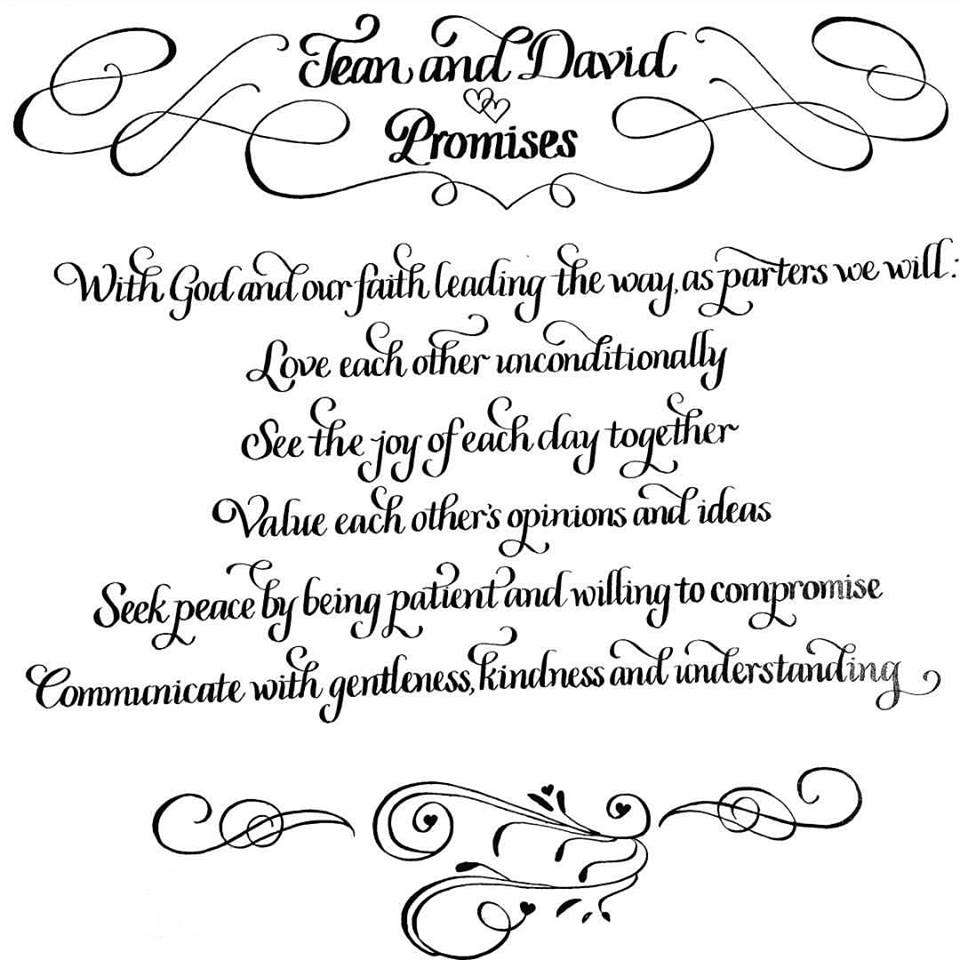 Jean and David
Promises
With God and our faith leading the way, as parters we will:
Love each other unconditionally
See the joy of each day together
Value each other's opinions and ideas
Seek peace by being patient and willing to compromise
Communicate with gentleness, kindness and understanding